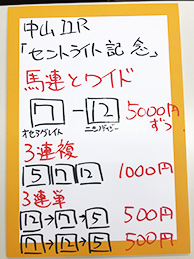 中山11R
「セントライト記念」
馬連とワイド
7 - 12 5000円ずつ
オセアグレイト ニシノデイジー
3連複
5 7 12 1000円
3連単
12→7→5 500円
7→12→5 500円